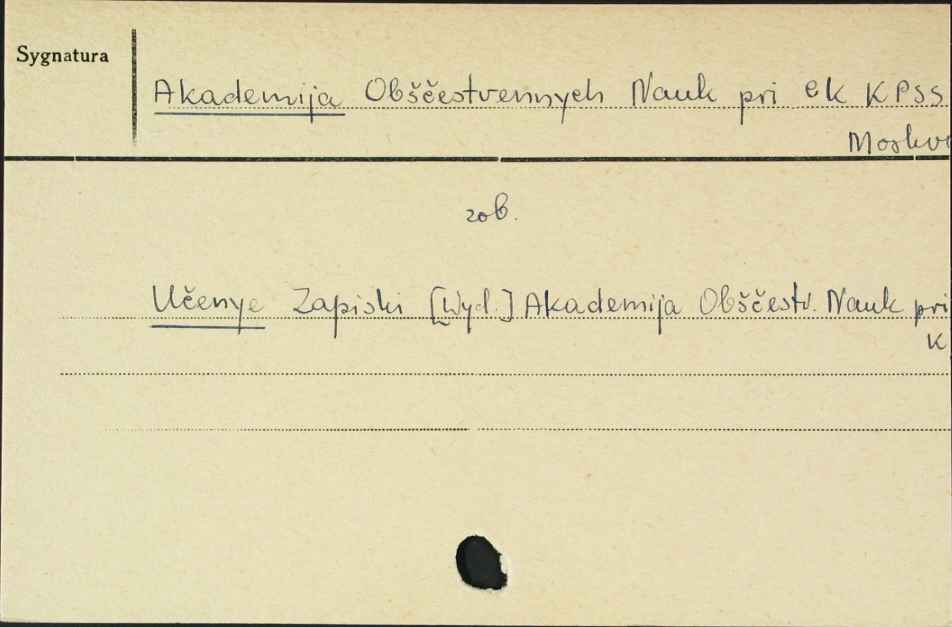 Sygnatura
Akademija Obščestvennych Nauk pri CK KPSS
Moskva
zob.
Učenye Zapiski [Wyd.] Akademija Obščestv. Nauk pri
K